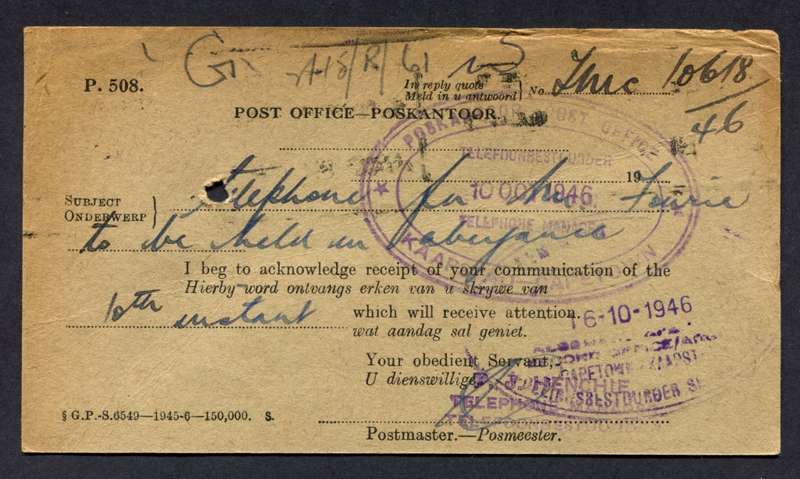 G. A15/R/61
P. 508.
In reply quote
Meld in u antwoord } No. 10618
/46
POST OFFICE—POSKANTOOR.
POSKANTOOR POST OFFICE
TELEFOONBESTUURDER
10 OCT 1946
TELEPHONE MANAGER
19
SUBJECT
ONDERWERP } Telephone for Mr. Fourie
to be held in abeyance
I beg to acknowledge receipt of your communication of the
Hierby word ontvangs erken van u skrywe van
10th instant which will receive attention.
wat aandag sal geniet.
16-10-1946
Your obedient Servant,
U dienswillige
CAPETOWN KAAPSTAD
P. J. HENCHIE
TELEPHONE
§ G.P.-S.6549—1945-6—150,000. S.
Postmaster.—Posmeester.